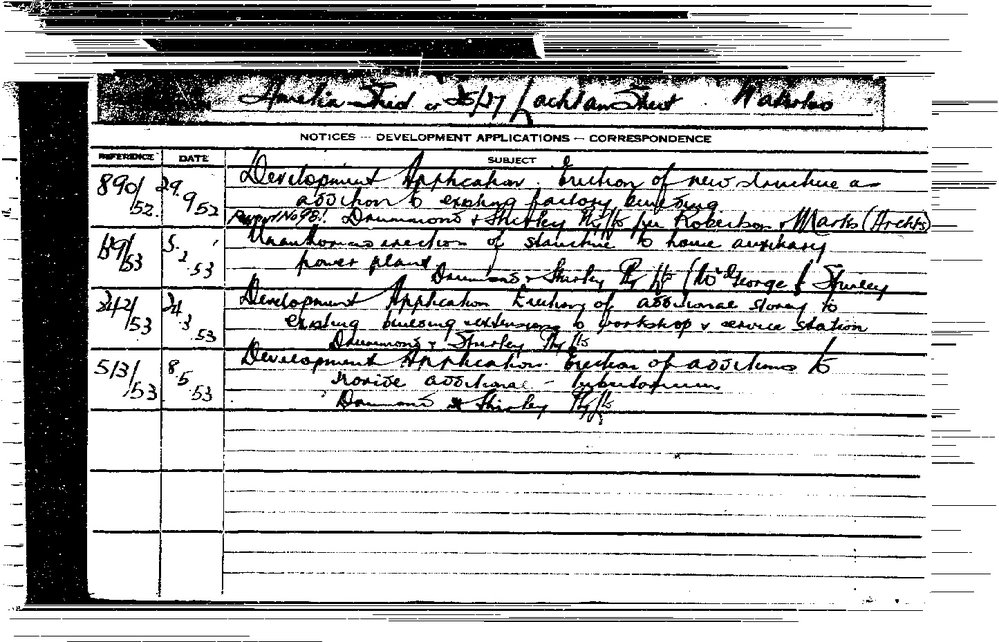 Amelia Street or 25/27 Lachlan Street Waterloo
NOTICES — DEVELOPMENT APPLICATIONS — CORRESPONDENCE
REFERENCE DATE SUBJECT
890/52 29.9.52 Development Application Erection of new structure as
addition to existing factory building
Report No 98. Drummond & Shirley Pty Ltd per Robertson & Marks (Archts)
/53 5.2.53 Unauthorised erection of structure to house auxiliary
power plant Drummond & Shirley Pty Ltd George Shirley
342/53 24.3.53 Development Application Erection of additional storey to
existing building extensions to workshop & service station
Drummond & Shirley Pty Ltd
513/53 8.5.53 Development Application Erection of additions to
provide additional
Drummond & Shirley Pty Ltd